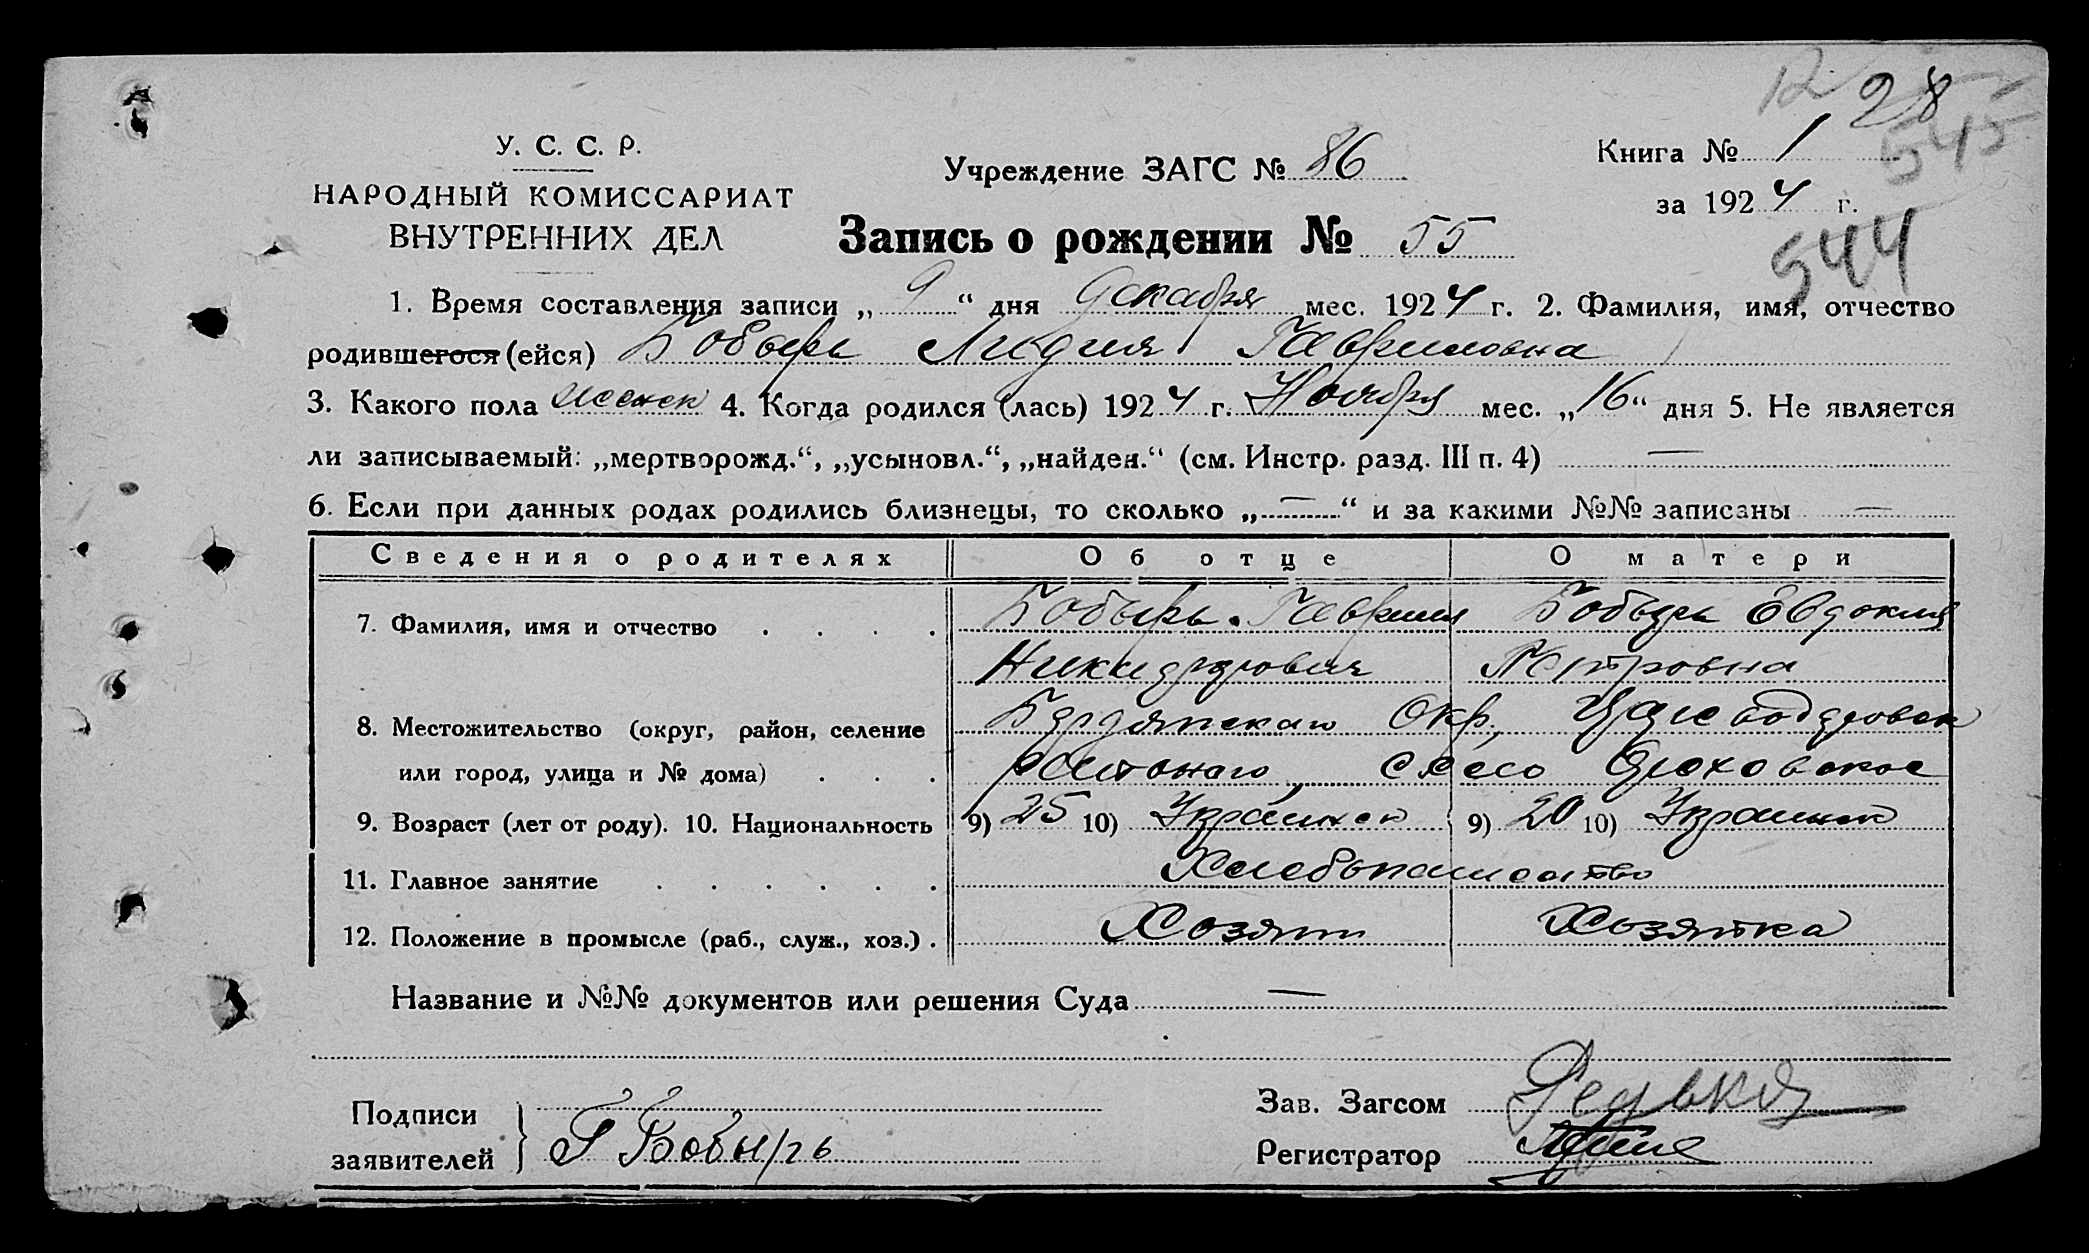 12 28
545
У. С. С. Р.
НАРОДНЫЙ КОМИССАРИАТ
ВНУТРЕННИХ ДЕЛ
Учреждение ЗАГС № 86
Книга № 1
за 1924 г.
544
Запись о рождении № 55
1. Время составления записи „ 9 “ дня Декабря мес. 1924 г. 2. Фамилия, имя, отчество
родившегося (ейся) Бобырь Лидия Гавриловна
3. Какого пола женск 4. Когда родился (лась) 1924 г. Ноября мес. „16“ дня 5. Не является
ли записываемый: „мертворожд.“, „усыновл.“, „найден.“ (см. Инстр. разд. III п. 4) —
6. Если при данных родах родились близнецы, то сколько „—“ и за какими №№ записаны —
Сведения о родителях Об отце О матери
7. Фамилия, имя и отчество . . . . Бобырь Гавриил Бобырь Евдокия
Никидорович Петровна
8. Местожительство (округ, район, селение Бердянскаго Окр,
или город, улица и № дома) . . . село
9. Возраст (лет от роду). 10. Национальность 9) 25 10) Украинск 9) 20 10) Украинск
11. Главное занятие . . . . . . Хлебопашество
12. Положение в промысле (раб., служ., хоз.) . Хозяин Хозяйка
Название и №№ документов или решения Суда —
Подписи
заявителей } Г Бобырь
Зав. Загсом Редька
Регистратор